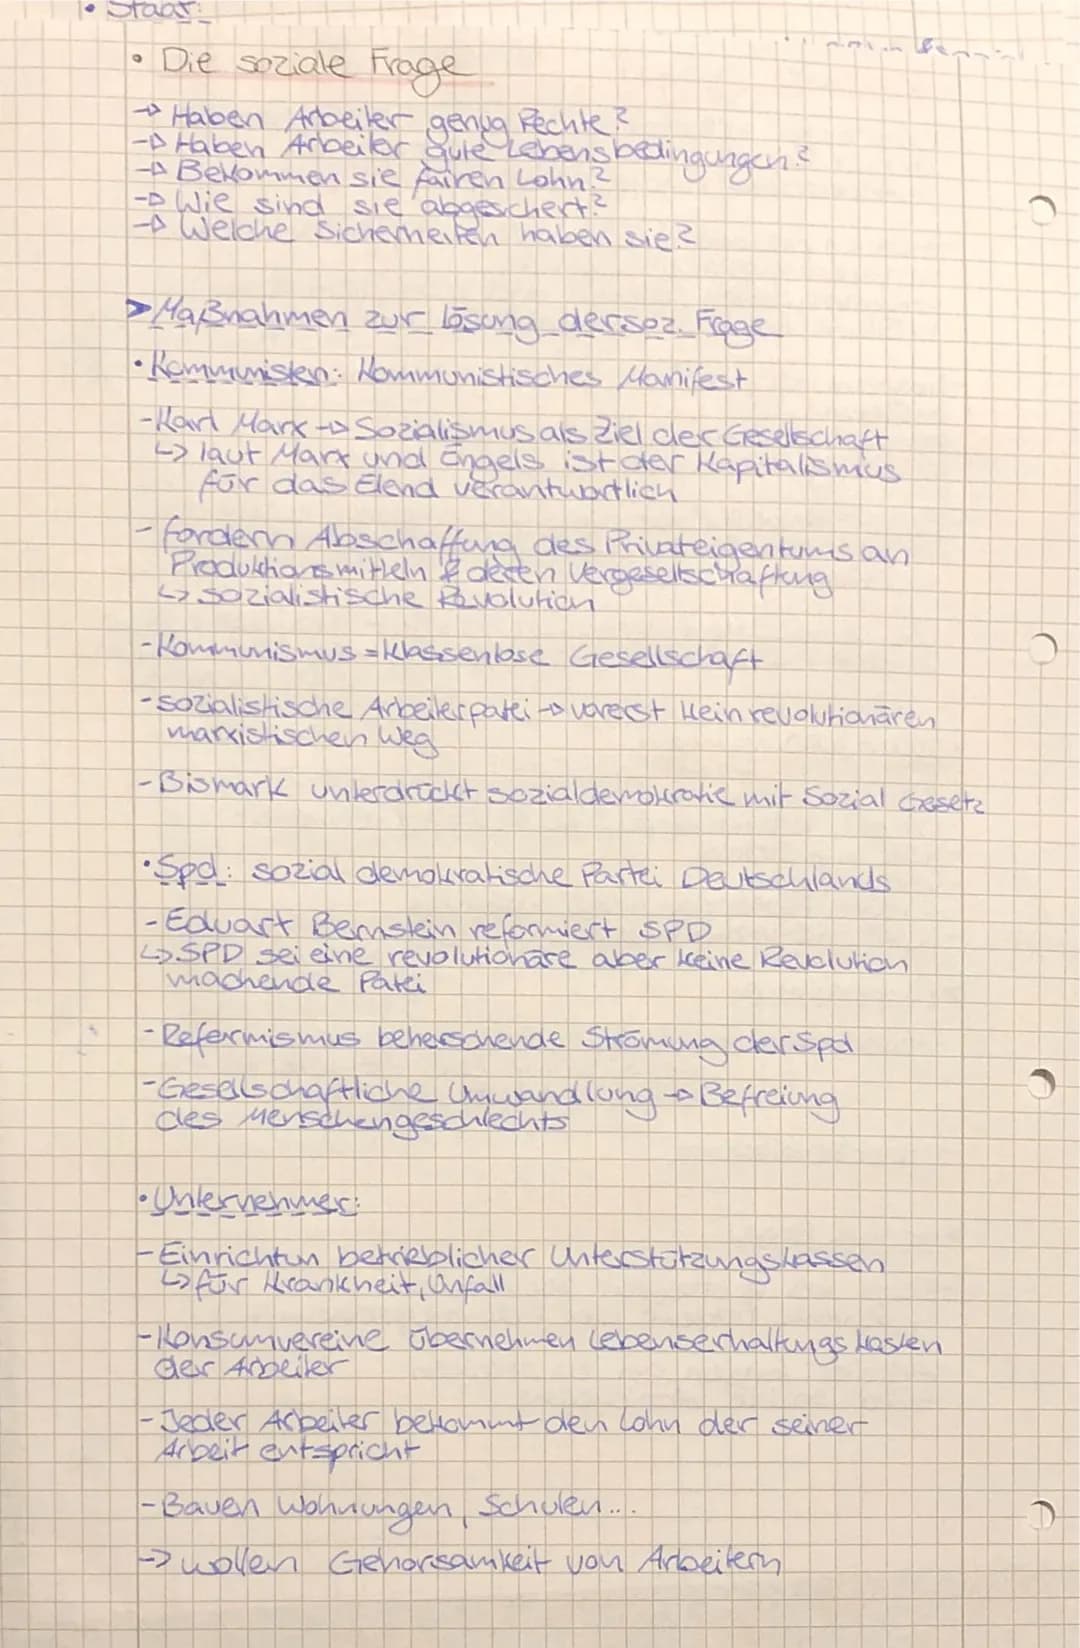 • Staat:
• Die soziale Frage
→ Haben Arbeiter genug Rechte?
→ Haben Arbeiter gute Lebensbedingungen?
→ Bekommen sie fairen Lohn?
→ Wie sind sie abgeschert?
→ Welche Sicherheiten haben sie?
> Maßnahmen zur lösung der soz. Frage
• Kommunisten: Kommunistisches Manifest
- Karl Marx → Sozialismus als Ziel der Gesellschaft
↳ laut Marx und Engels ist der Kapitalismus
für das Elend verantwortlich
- fordern Abschaffung des Privateigentums an
Produktionsmitteln & deren Vergesellschaftung
↳ sozialistische Revolution
- Kommunismus = klassenlose Gesellschaft
- sozialistische Arbeiterpatei → vorerst kein revolutionären
marxistischen Weg
- Bismark unterdrückt sozialdemokratie mit Sozial Gesetz
• Spd: sozial demokratische Partei Deutschlands
- Eduart Bernstein reformiert SPD
↳ SPD sei eine revolutionäre aber keine Revolution
machende Patei
- Reformismus beherschende Strömung der Spd
- Gesellschaftliche Umwandlung → Befreiung
des Menschengeschlechts
• Unternehmer:
- Einrichtun betrieblicher Unterstützungskassen
↳ für Krankheit, Unfall
- Konsumvereine übernehmen Lebenserhaltungs kosten
der Arbeiter
- Jeder Arbeiter bekommt den Lohn der seiner
Arbeit entspricht
- Bauen Wohnungen, Schulen...
→ wollen Gehorsamkeit von Arbeitern